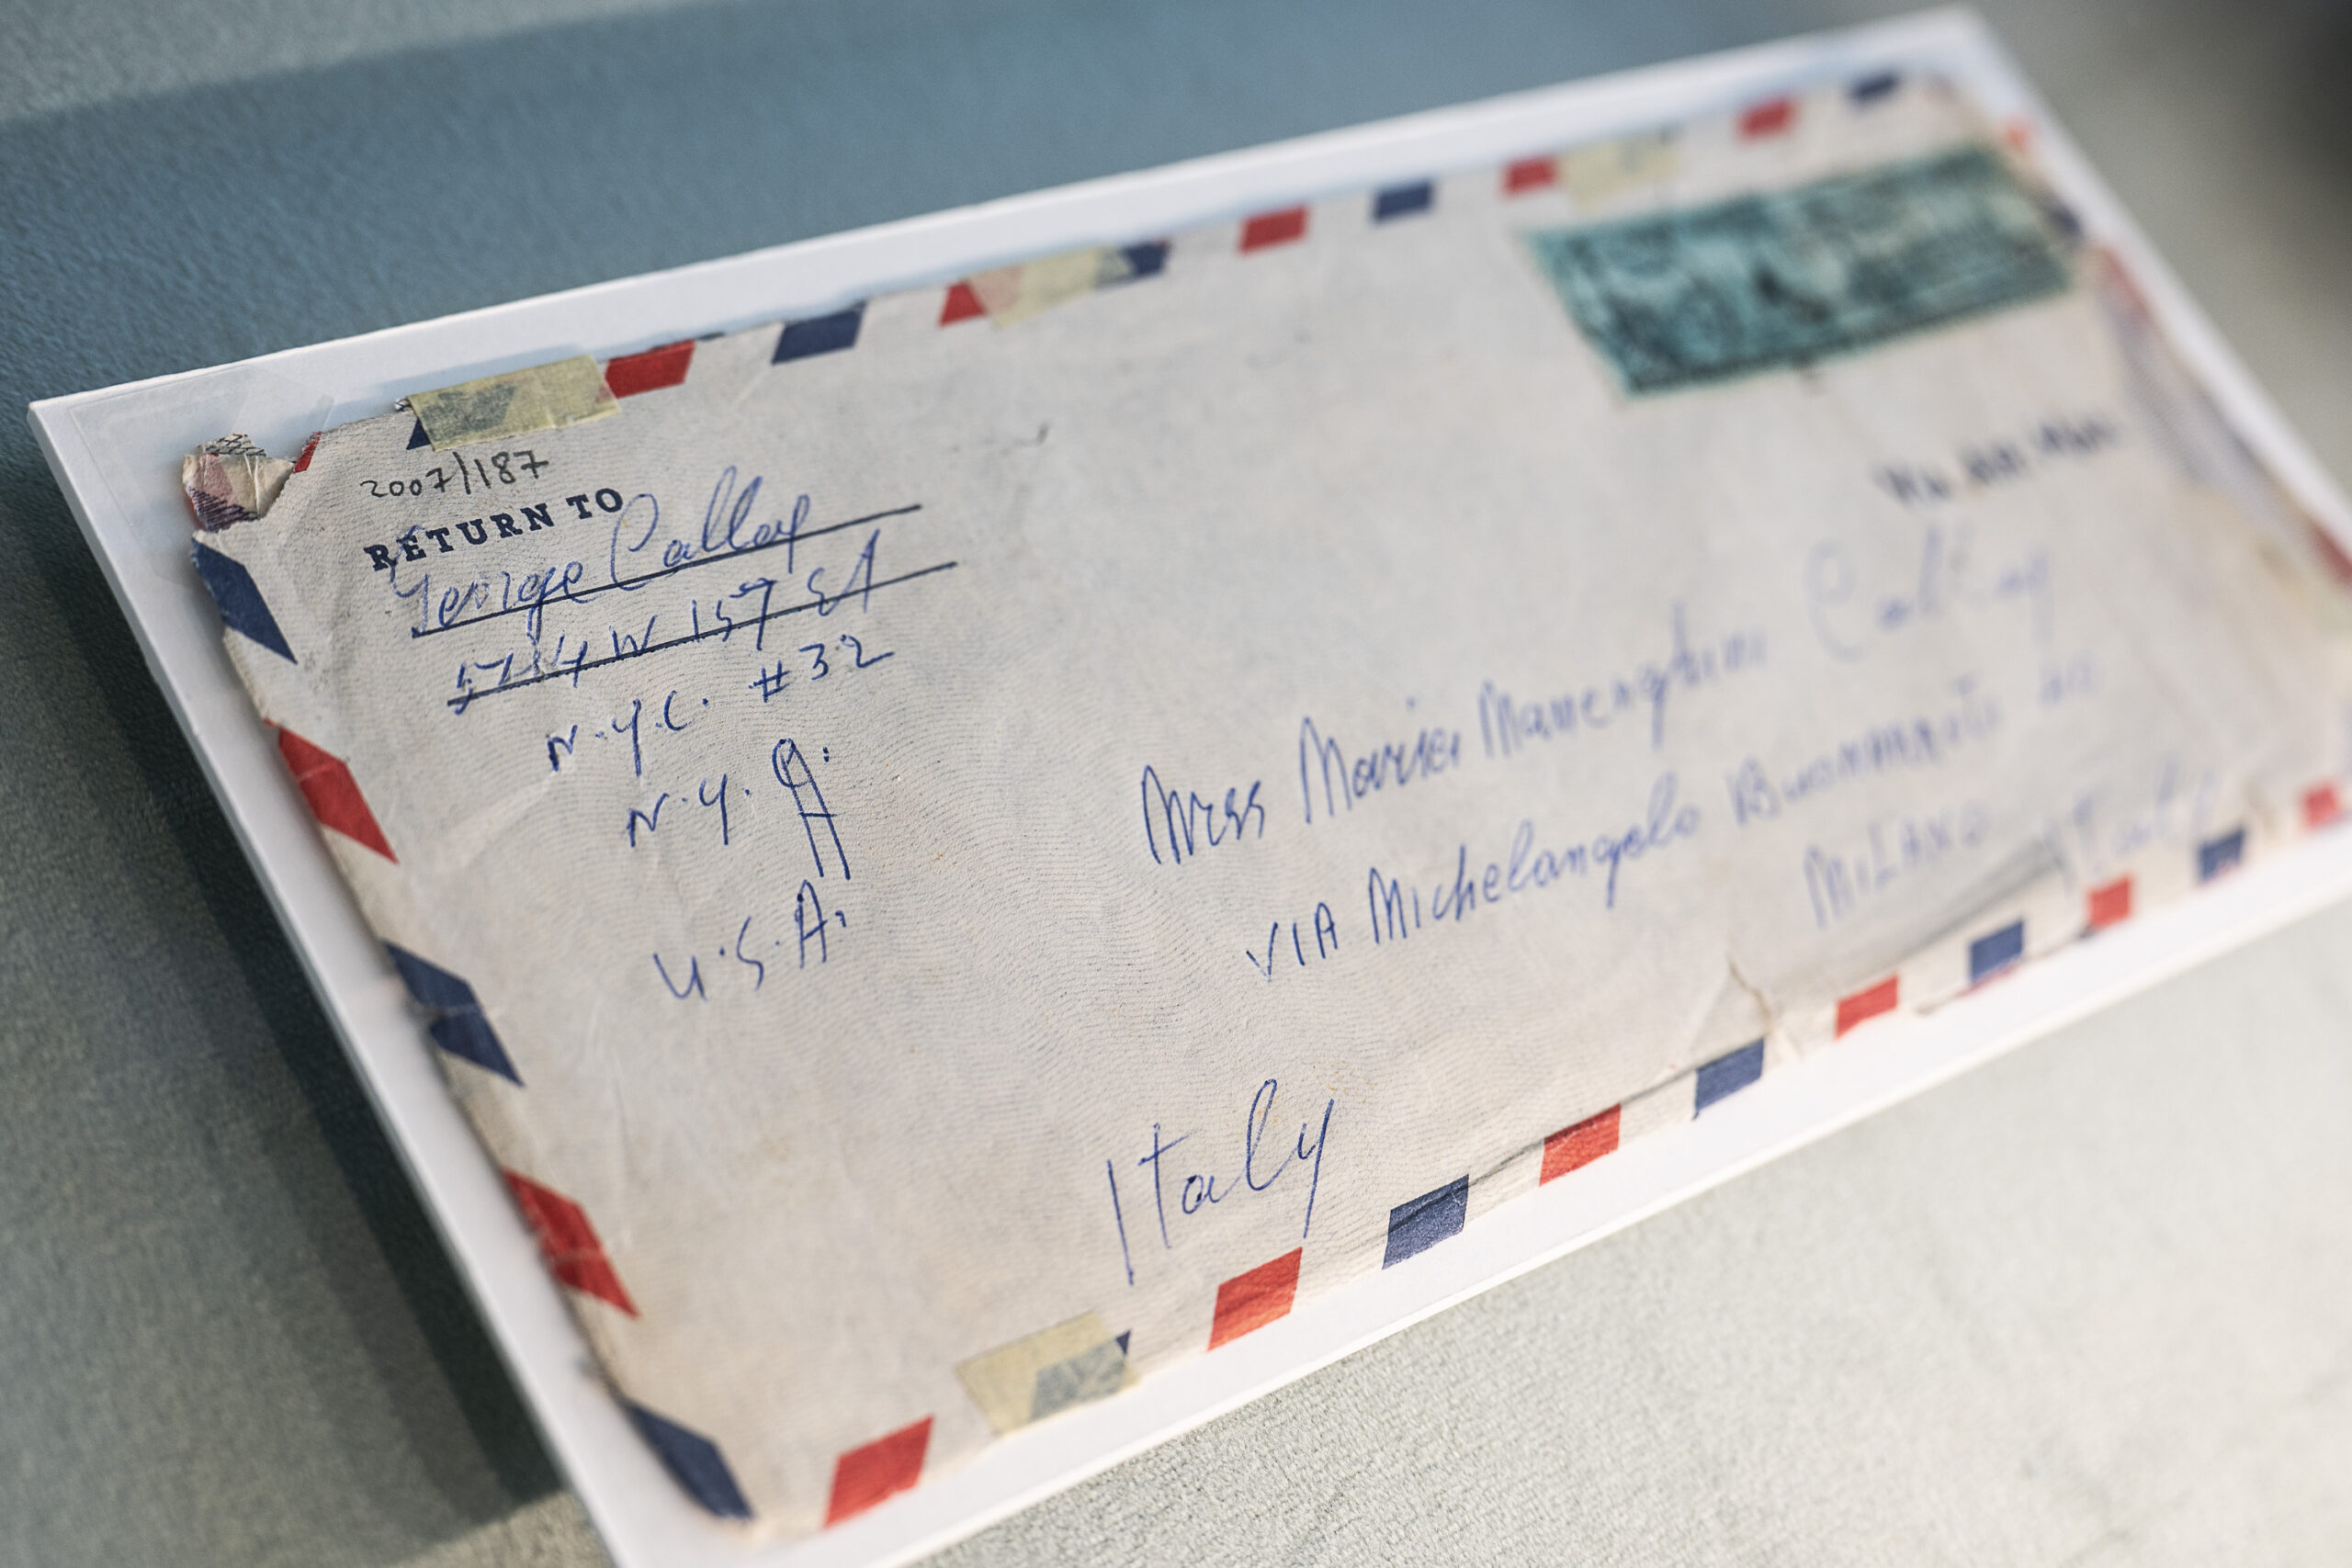 2007/187
RETURN TO
George Callas
W 157 St
N.Y.C. #32
N.Y.
U.S.A.
Mrss Maria Meneghini Callas
VIA Michelangelo Buonarroti
MiLANO Italy
Italy